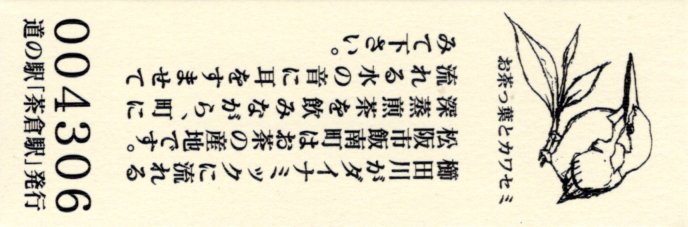 お茶っ葉とカワセミ
櫛田川がダイナミックに流れる
松阪市飯南町はお茶の産地です。
深蒸煎茶を飲みながら、町に
流れる水の音に耳をすませて
みて下さい。
004306
道の駅「茶倉駅」発行